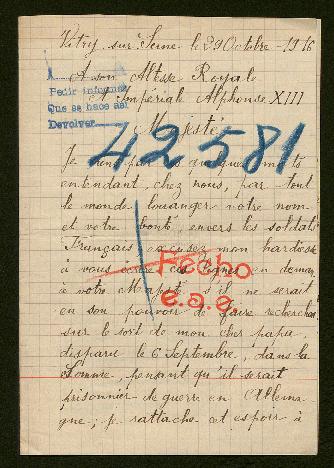 Vitry sur Seine le 29 Octobre - 1916
A son Altesse Royale
et Impériale Alphonse XIII
Pedir informes
Que se hace así
Devolver
Majesté,
42581
Je viens par ces quelques mots
entendant, chez nous, par tout
le monde louanger votre nom
et votre bonté envers les soldats
Français excusez mon hardiesse
à vous écrire ces lignes en deman
Fecho
à votre Majesté s'il ne serait
e.a.e.
en son pouvoir de faire rechercher
sur le sort de mon cher papa,
disparu le 6 Septembre, dans la
Somme, pensant qu'il serait
prisonnier de guerre en Allema-
gne; je rattache cet espoir à